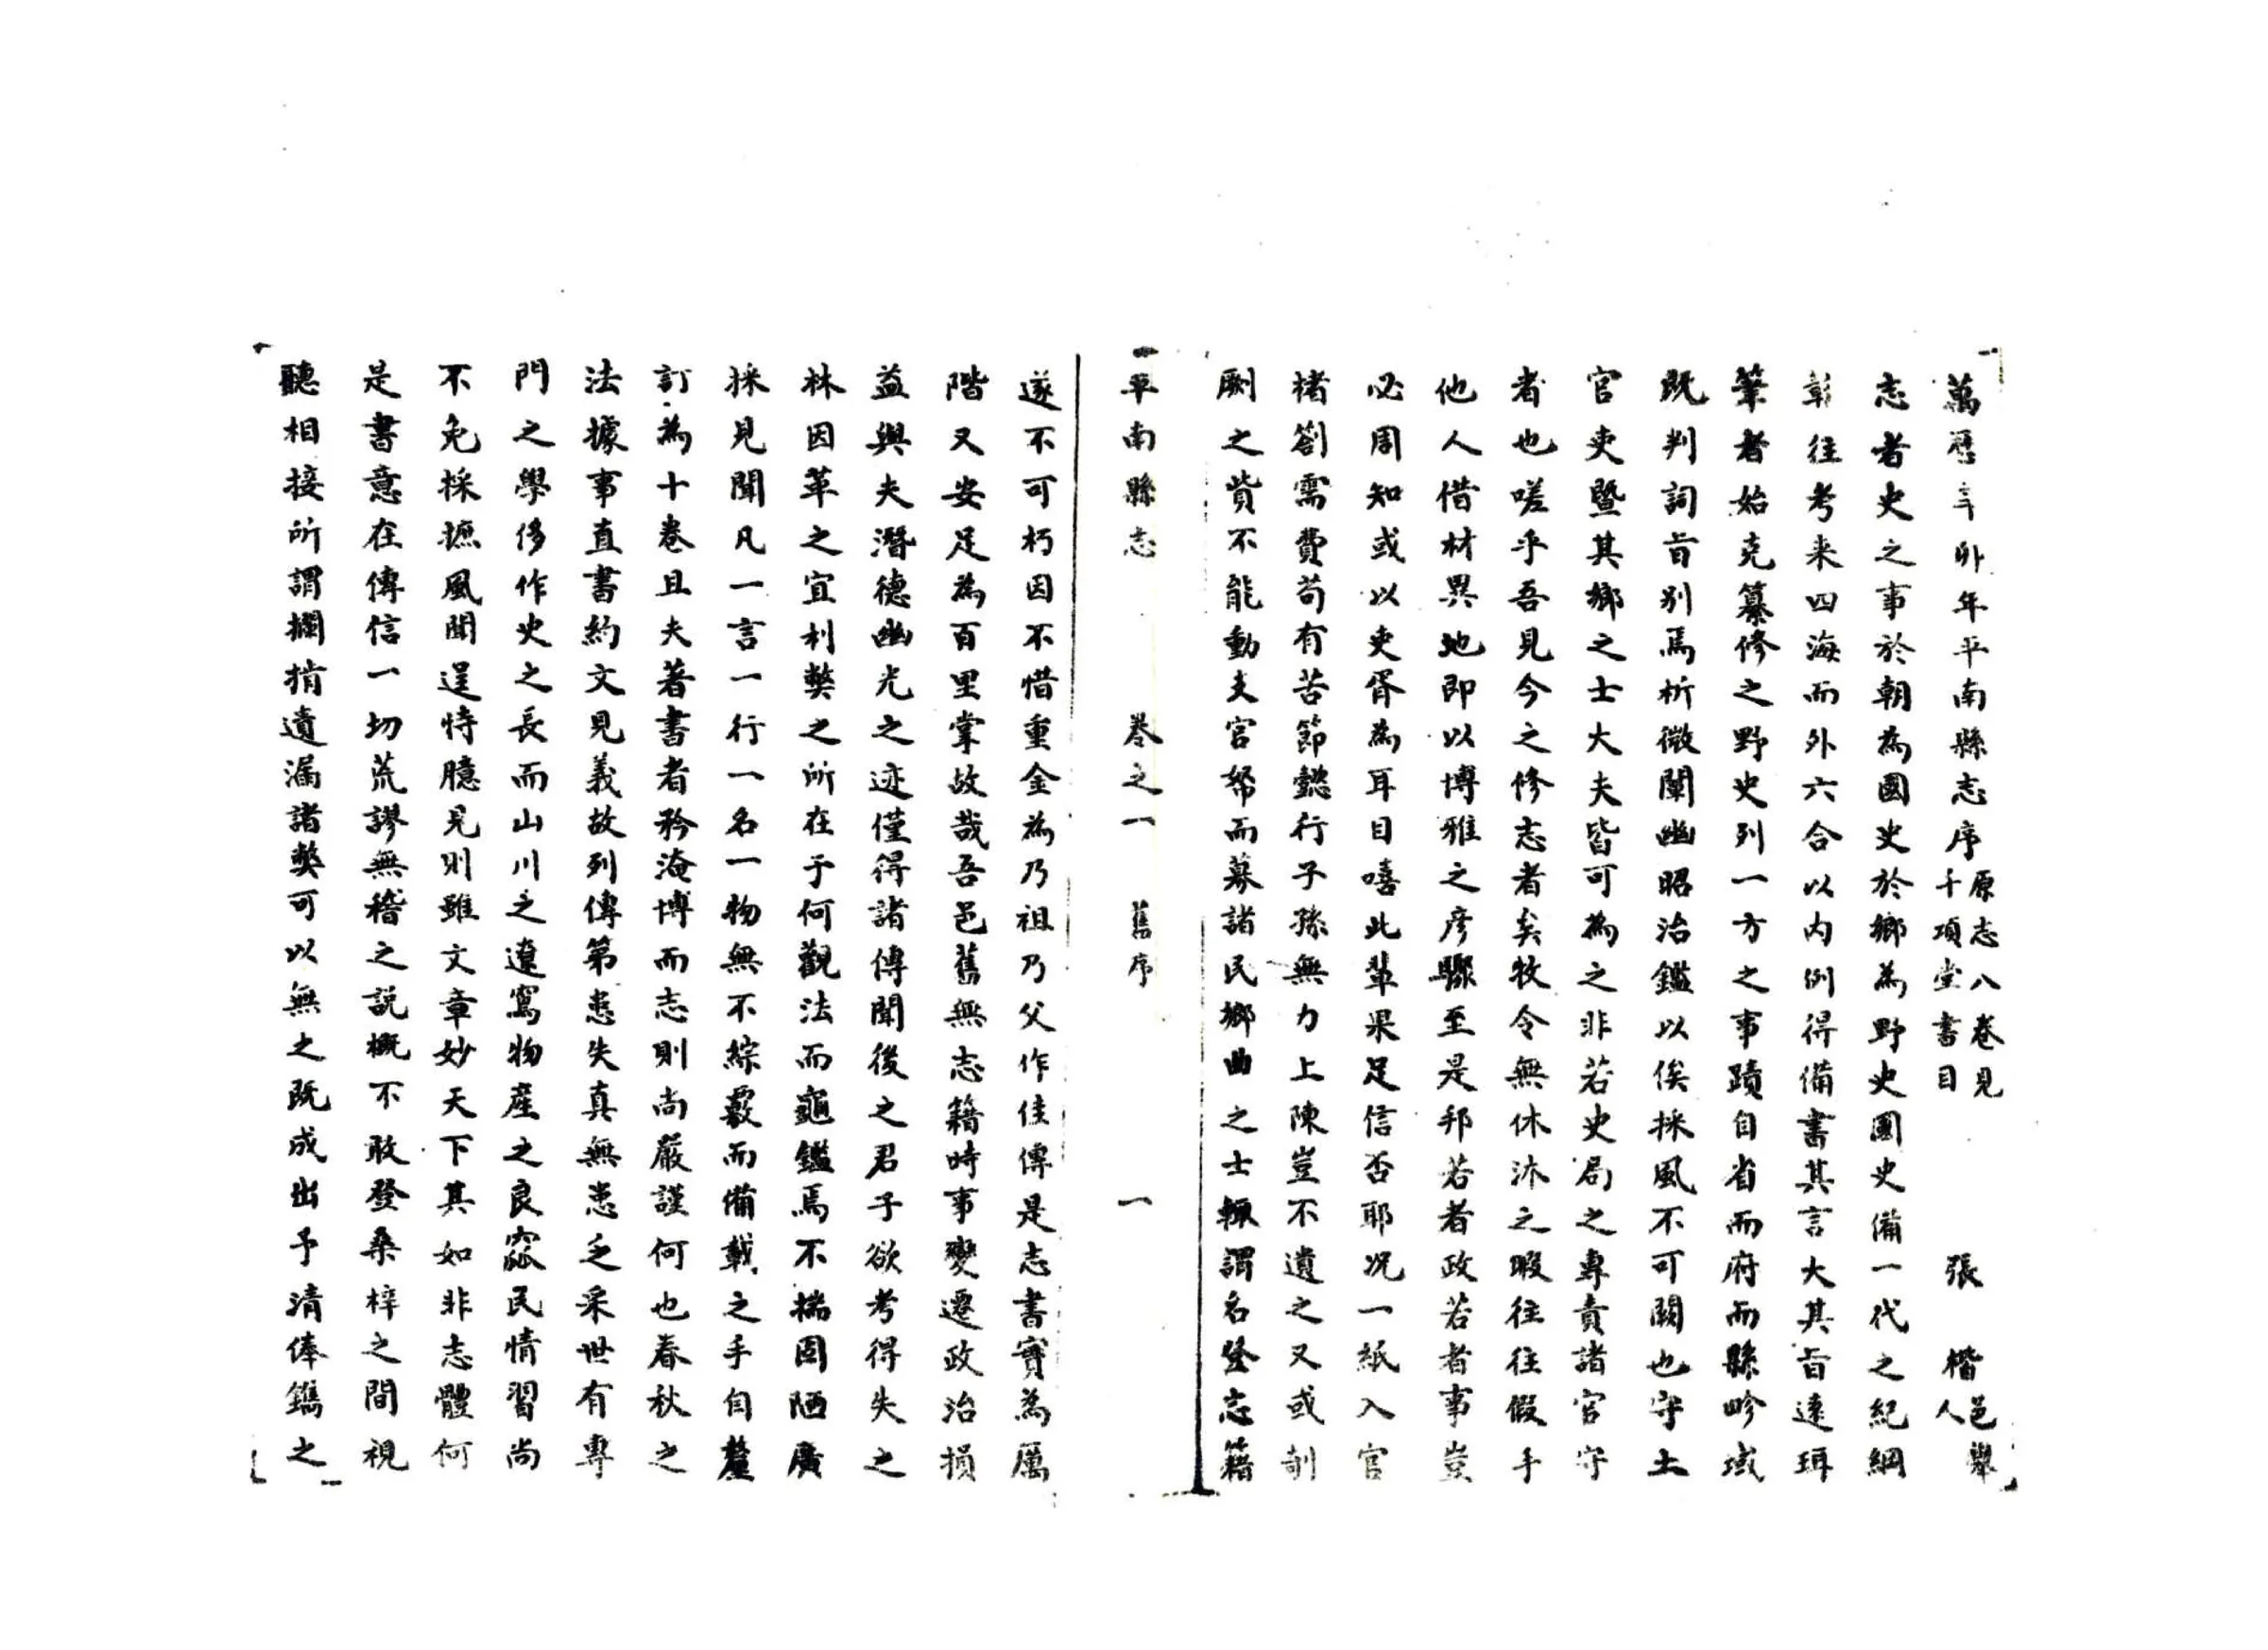 萬曆辛卯年平南縣志序原志八卷見千項堂書目 張 楷邑舉人
志者史之事於朝為國史於鄉為野史國史備一代之紀綱
彰往考来四海而外六合以内例得備書其言大其旨遠珥
筆者始克纂修之野史列一方之事蹟自省而府而縣畛域
既判詞旨别焉析微闡幽昭治鑑以俟採風不可闕也守土
官吏暨其鄉之士大夫皆可為之非若史局之專責諸官守
者也嗟乎吾見今之修志者矣牧令無休沐之暇往往假手
他人借材異地即以博雅之彦驟至是邦若者政若者事豈
必周知或以吏胥為耳目嘻此輩果足信否耶况一紙入官
楮劄需費苟有苦節懿行子孫無力上陳豈不遺之又或剞
劂之貲不能動支官帑而募諸民鄉曲之士輒謂名登志籍
平南縣志 卷之一 舊序 一
遂不可朽因不惜重金為乃祖乃父作佳傳是志書實為厲
階又安足為百里掌故哉吾邑舊無志籍時事變遷政治損
益與夫潛德幽光之迹僅得諸傳聞後之君子欲考得失之
林因革之宜利獘之所在于何觀法而龜鑑焉不揣固陋廣
採見聞凡一言一行一名一物無不綜覈而備載之手自釐
訂為十卷且夫著書者矜淹博而志則尚嚴謹何也春秋之
法據事直書約文見義故列傳第患失真無患乏采世有專
門之學侈作史之長而山川之遼窵物產之良窳民情習尚
不免採摭風聞逞恃臆見則雖文章妙天下其如非志體何
是書意在傳信一切荒謬無稽之説概不敢登桑梓之間視
聽相接所謂擱掯遺漏諸獘可以無之既成出予清俸鐫之